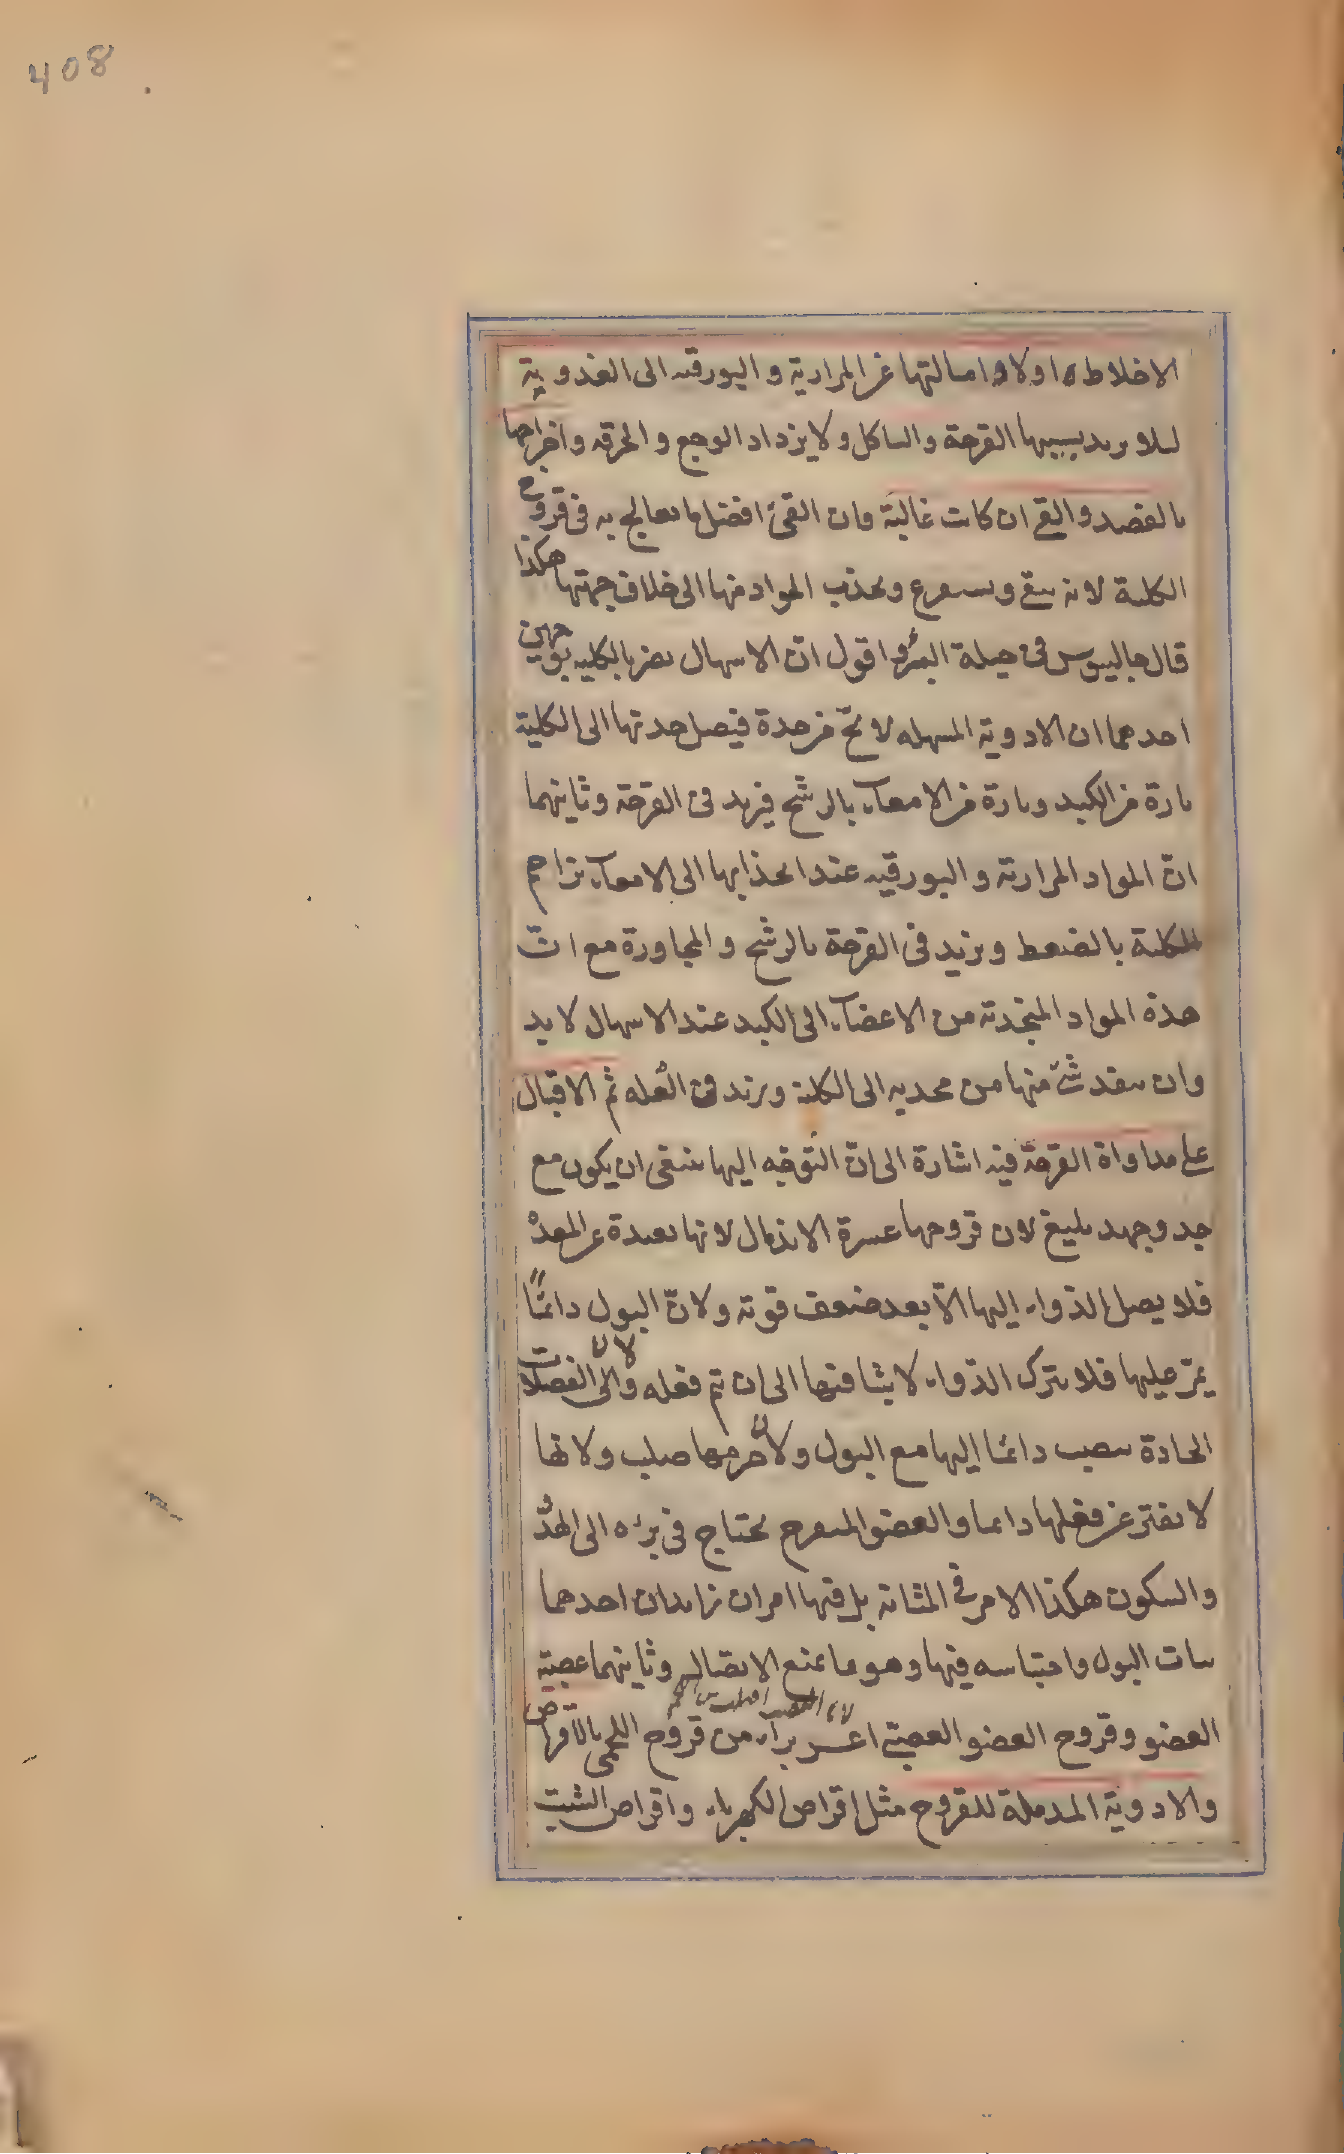 408
الاخلاط اولا و امالتها عن المرارية و البورقيه الى العذوبة
لئلا يزيد بسببها القرحة و التاكل و لا يزداد الوجع و الحرقه و اخراجها
بالفصد و القئ ان كانت غالبة فان القئ افضل ما يعالج به فى قروح
الكلية لانه ينقى و يستفرغ و يجذب المواد منها الى خلاف جهتها هكذا
قال جالينوس فى حيلة البرؤ و اقول ان الاسهال يضر بالكليه بوجهين
احدهما ان الادوية المسهله لا تخ من حدة فيصل حدتها الى الكلية
تارة من الكبد و تارة من الامعاء بالرشح فيزيد فى القرحة و ثانيهما
ان المواد المرارية و البورقيه عند انجذابها الى الامعاء تزاحم
للكلية بالضغط و يزيد فى القرحة بالرشح و المجاورة مع ان
هذه المواد المنجذبة من الاعضاء الى الكبد عند الاسهال لا بد
و ان ينفد شئ منها من محدبه الى الكلية و يزيد فى العله ثم الاقبال
على مداواة القرحة فيه اشارة الى ان التوجه اليها ينبغى ان يكون مع
جد و جهد بليغ لان قروحها عسرة الاندمال لانها بعيدة عن المعدة
فلا يصل الدواء اليها الا بعد ضعف قوته و لان البول دائما
يمر عليها فلا يترك الدواء لا يثا فتها الى ان تم فعله و لان الفضلات
الحادة تنصب دائما اليها مع البول و لان جرمها صلب و لانها
لا تفتر عن فعلها دائما و العضو المتقرح يحتاج فى برئه الى الهدؤ
و السكون هكذا الامر فى المثانه بل فيها امران زايدان احدهما
ثبات البول و احتباسه فيها و هو ما يمنع الاتصال و ثانيهما عصبية
لان العصب اصلب من اللحم
العضو و قروح العضو العصبى اعسر براء من قروح اللحمى بالاقراص
و الادوية المدملة للقروح مثل اقراص الكهرباء و اقراص الشب